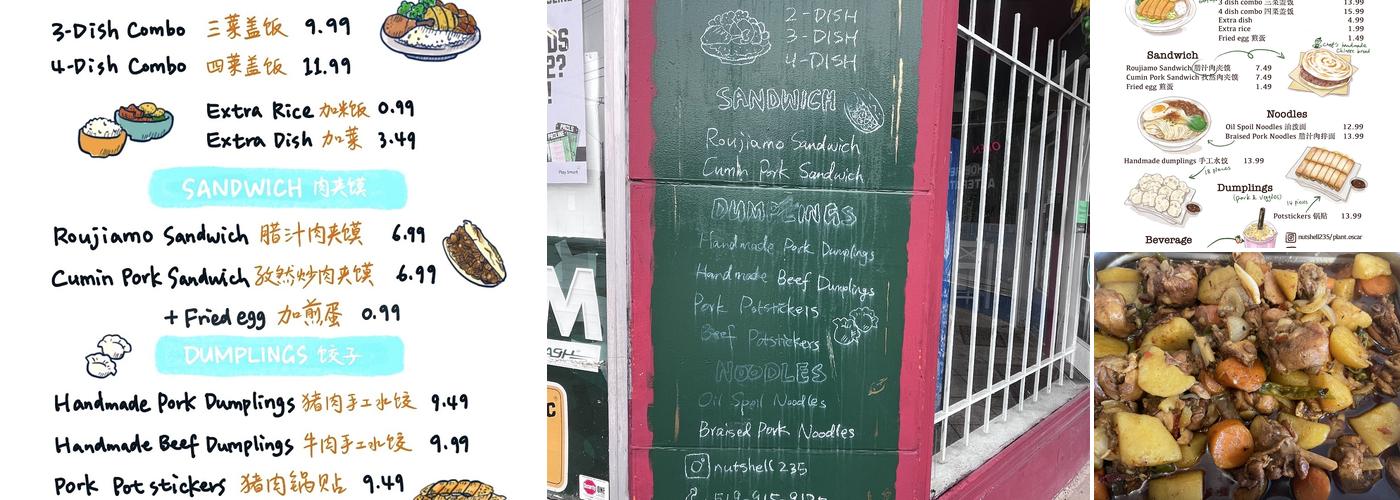 3-Dish Combo 三菜盖饭 9.99
4-Dish Combo 四菜盖饭 11.99
Extra Rice 加米饭 0.99
Extra Dish 加菜 3.49
SANDWICH 肉夹馍
Roujiamo Sandwich 腊汁肉夹馍 6.99
Cumin Pork Sandwich 孜然炒肉夹馍 6.99
+ Fried egg 加煎蛋 0.99
DUMPLINGS 饺子
Handmade Pork Dumplings 猪肉手工水饺 9.49
Handmade Beef Dumplings 牛肉手工水饺 9.99
Pork Potstickers 猪肉锅贴 9.49
2-DISH
3-DISH
4-DISH
SANDWICH
Roujiamo Sandwich
Cumin Pork Sandwich
DUMPLINGS
Handmade Pork Dumplings
Handmade Beef Dumplings
Pork Potstickers
Beef Potstickers
NOODLES
Oil Spoil Noodles
Braised Pork Noodles
nutshell235
DS
2?
!
M
CASH
C
OPEN
3 dish combo 三菜盖饭 13.99
4 dish combo 四菜盖饭 15.99
Extra dish 4.99
Extra rice 1.99
Fried egg 煎蛋 1.49
Chef's handmade
Chinese bread
Sandwich
Roujiamo Sandwich 腊汁肉夹馍 7.49
Cumin Pork Sandwich 孜然肉夹馍 7.49
Fried egg 煎蛋 1.49
Noodles
Oil Spoil Noodles 油泼面 12.99
Braised Pork Noodles 腊汁肉拌面 13.99
Handmade dumplings 手工水饺 13.99
18 pieces
Dumplings
(pork & veggies)
14 pieces
Potstickers 锅贴 13.99
nutshell235/plant.oscar
Beverage